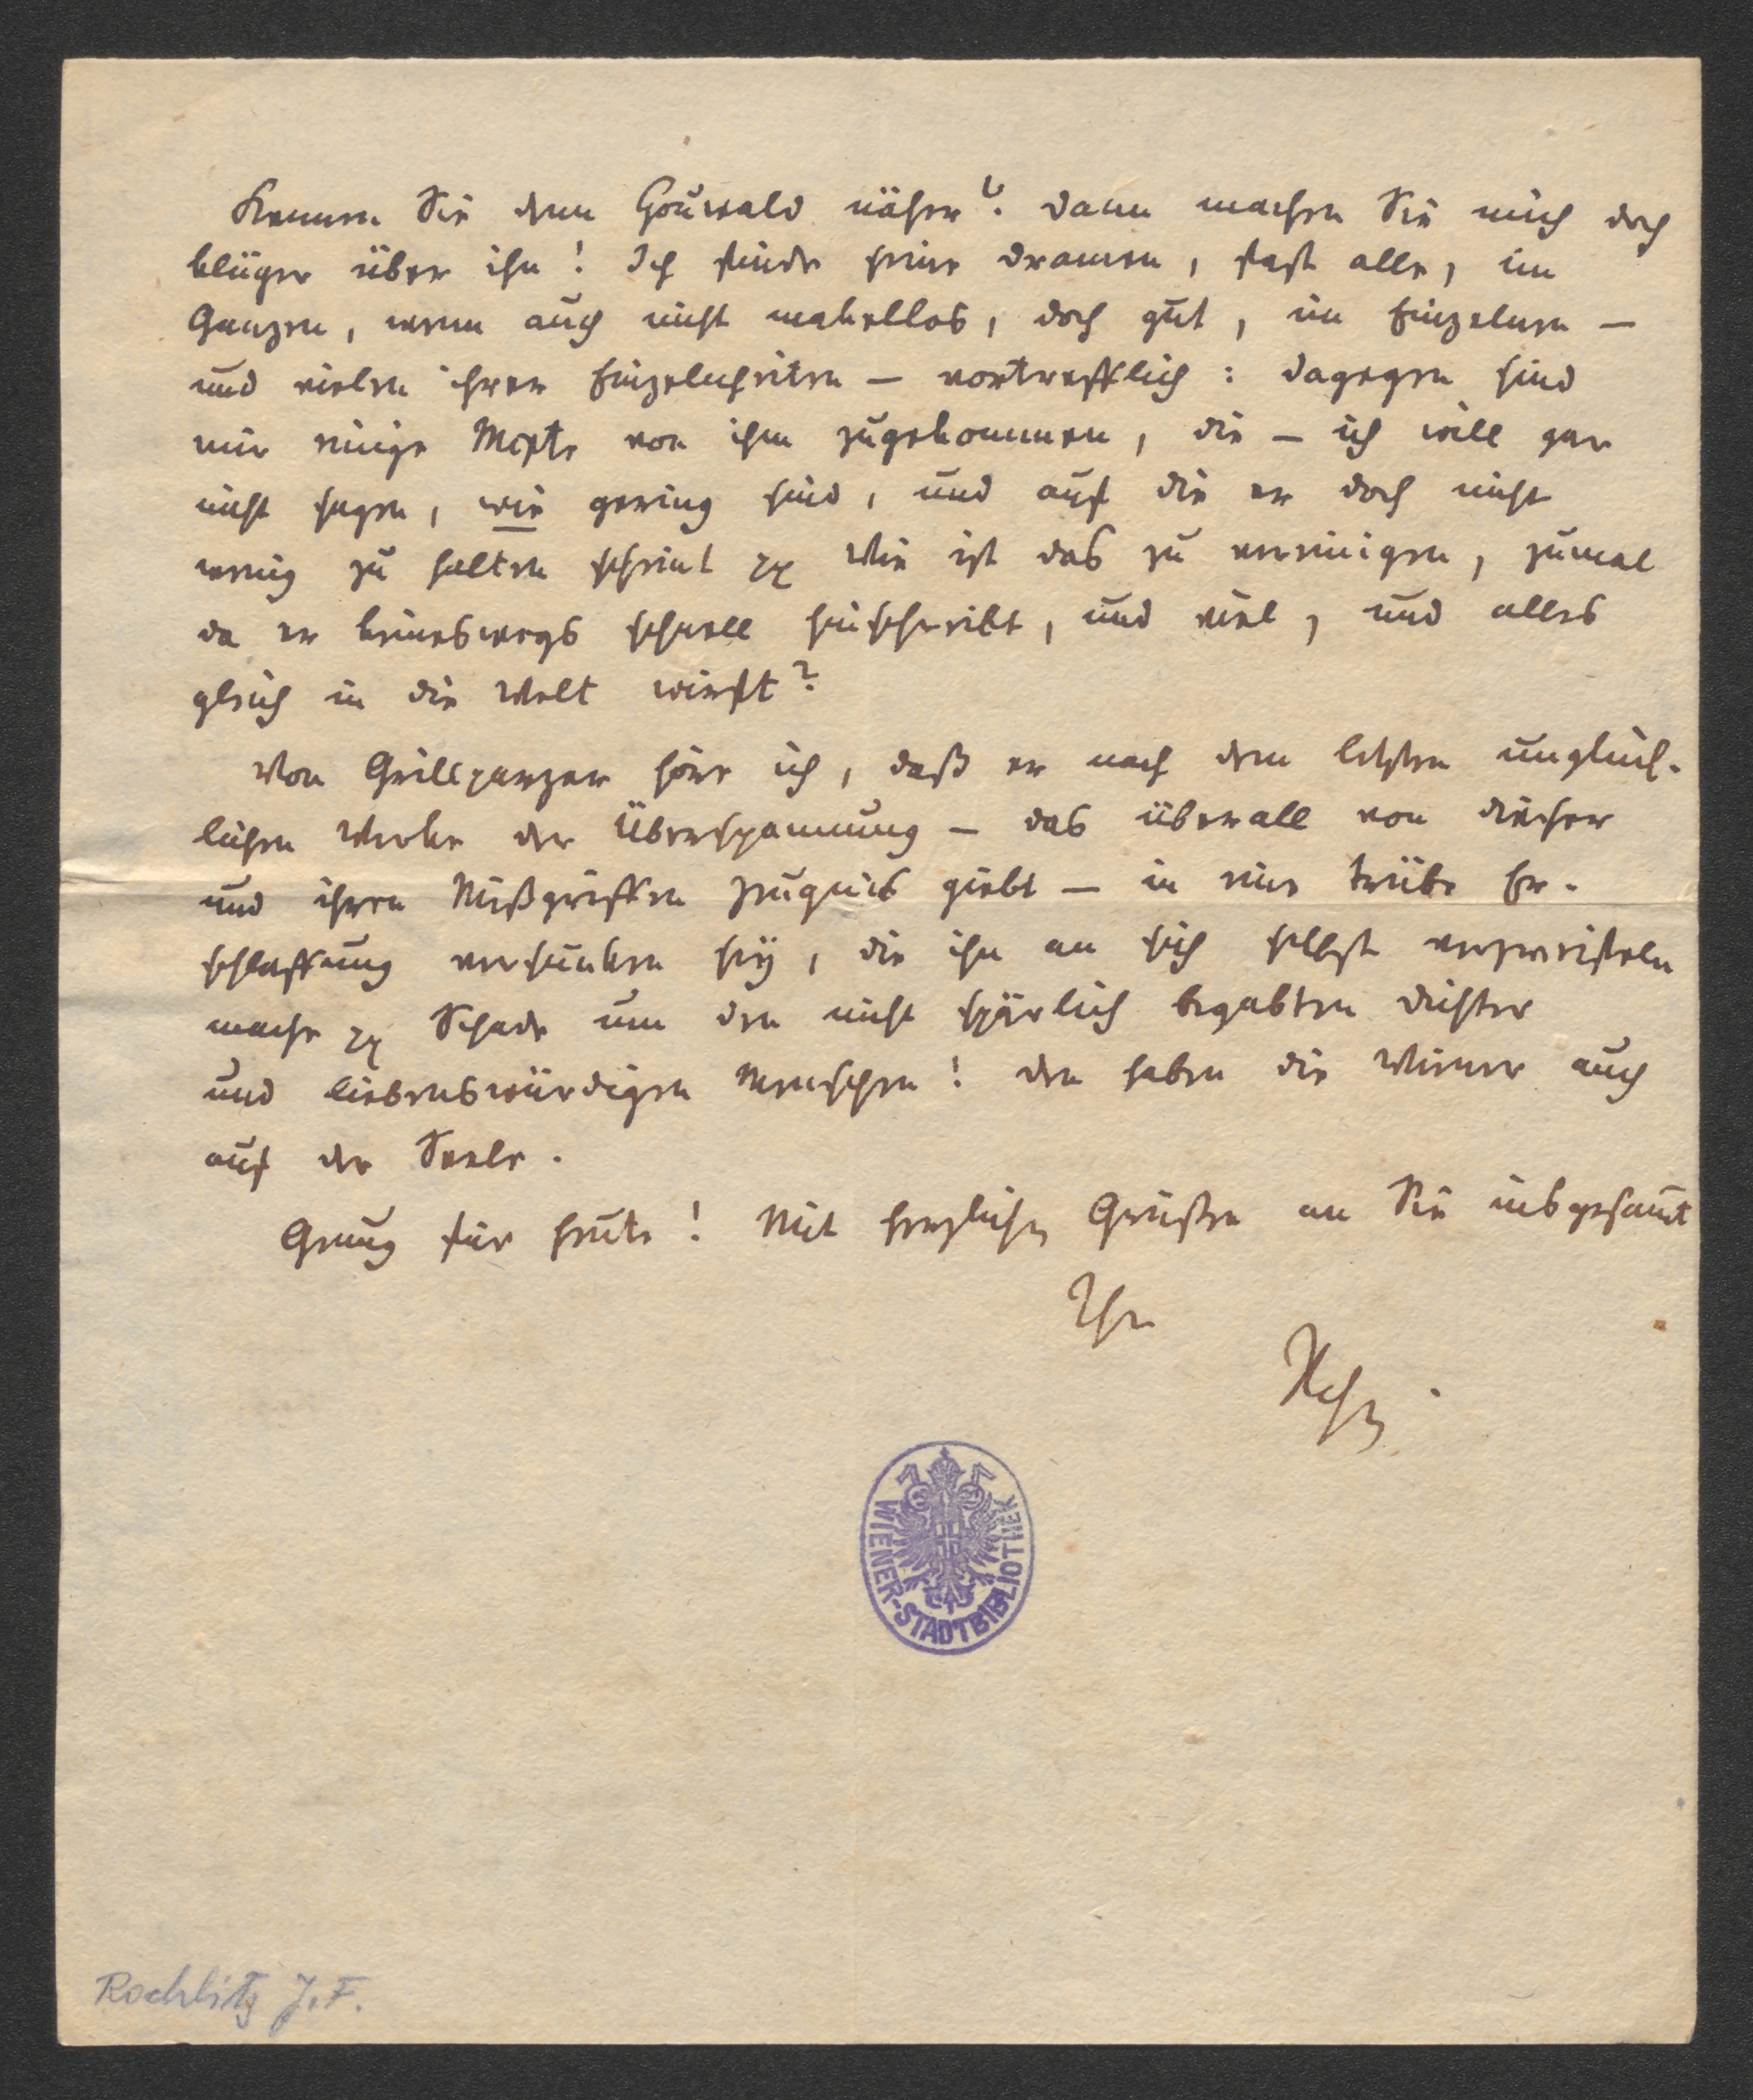 Kennen Sie denn Houwald näher? Dann machen Sie mich doch
klüger über ihn! Ich finde seine Dramen, fast alle, im
Ganzen, wenn auch nicht makellos, doch gut, im Einzelnen —
und vielen ihrer Einzelnheiten — vortrefflich: dagegen sind
mir einige Mspte von ihm zugekommen, die — ich will gar
nicht sagen, wie gering sind, und auf die er doch nicht
wenig zu halten scheint pp Wie ist das zu vereinigen, zumal
da er keineswegs schnell hinschreibt, und viel, und alles
gleich in die Welt wirft?
Von Grillparzer höre ich, daß er nach dem letzten unglück-
lichen Werke der Überspannung — das überall von dieser
und ihren Mißgriffen Zeugnis giebt — in eine trübe Er-
schlaffung versunken sey, die ihn an sich selbst verzweifeln
mache pp Schade um den nicht spärlich begabten Dichter
und liebenswürdigen Menschen! Den haben die Wiener auch
auf der Seele.
Genug für heute! Mit herzlichen Grüßen an Sie insgesamt
Ihr
Rchz.
WIENER-STADTBIBLIOTHEK
Rochlitz J. F.